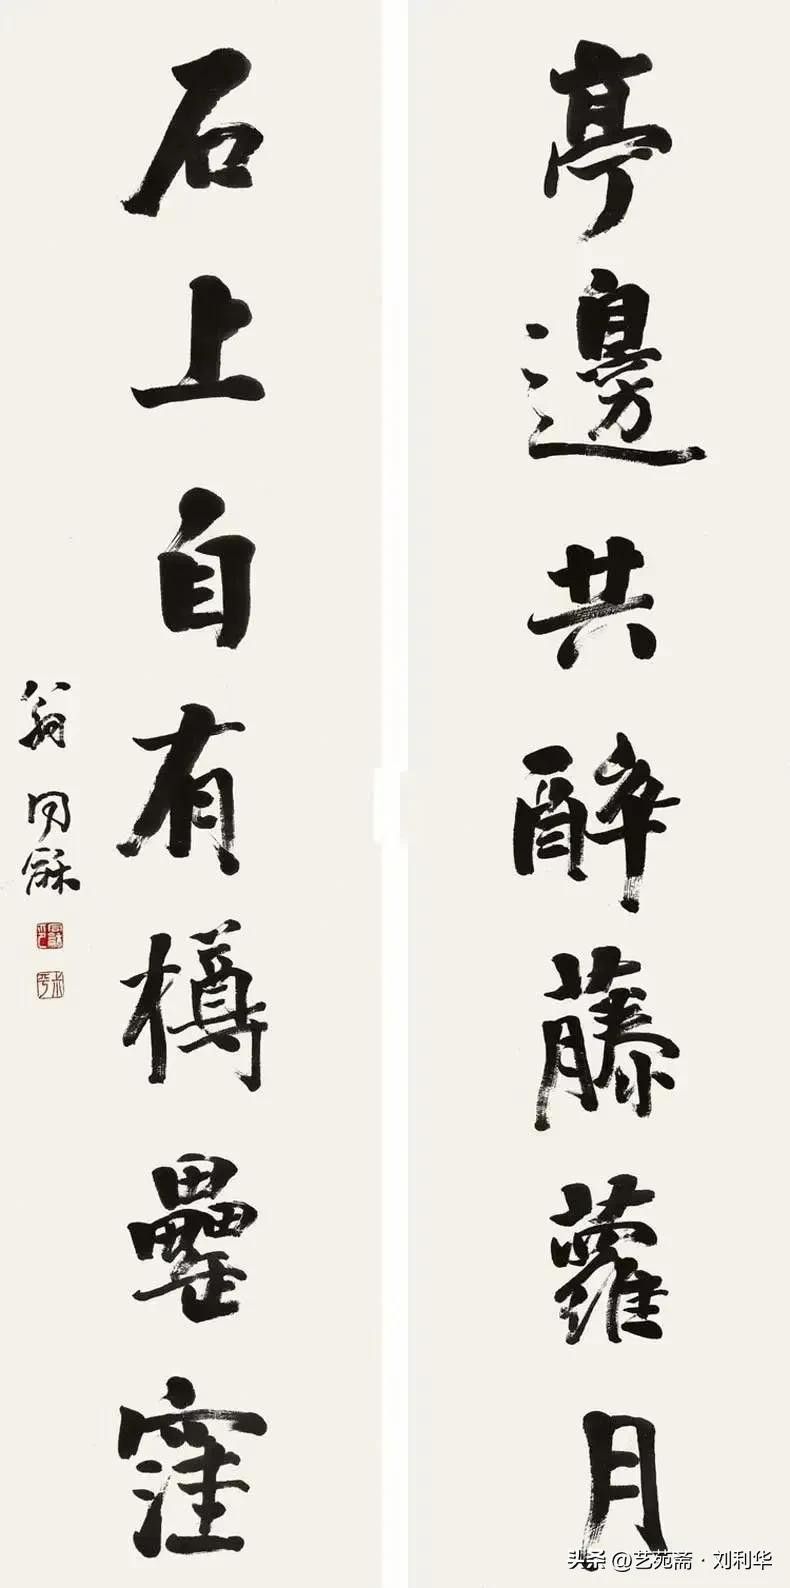 亭邊共醉藤蘿月
石上自有樽罍窪
翁同龢
头条 @艺苑斋·刘利华